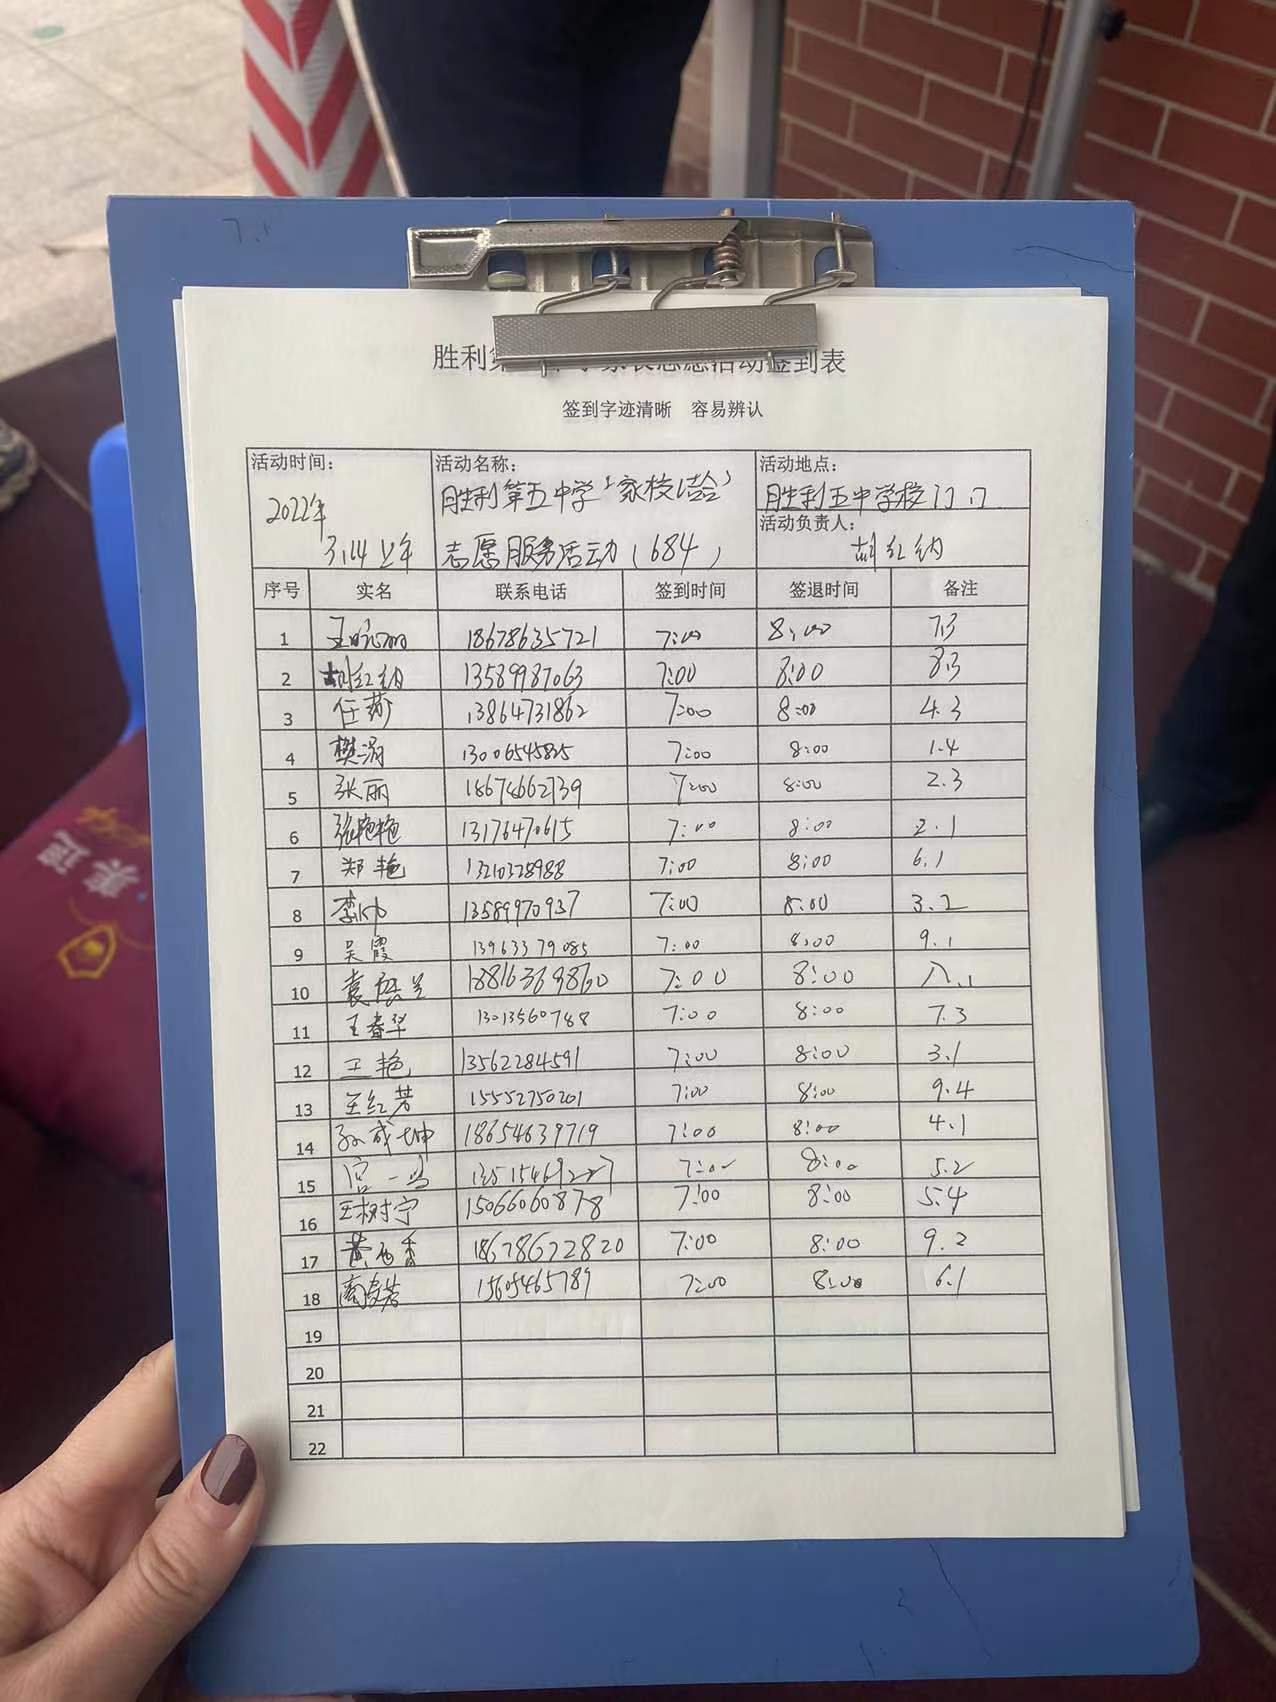 胜利第
志愿活动签到表
签到字迹清晰 容易辨认
活动时间：
2022年
3.14 上午
活动名称：
胜利第五中学"家校结合"
志愿服务活动（684）
活动地点：
胜利五中学校门口
活动负责人：
胡红纳
序号 实名 联系电话 签到时间 签退时间 备注
1 18678635721 7:00 8:00 7.3
2 胡红纳 13589987063 7:00 8:00 8.3
3 任莉 13864731862 7:00 8:00 4.3
4 樊涓 13006545825 7:00 8:00 1.4
5 张丽 18674662739 7:00 8:00 2.3
6 张艳艳 13176470615 7:00 8:00 2.1
7 郑艳 13210328988 7:00 8:00 6.1
8 13589970937 7:00 8:00 3.2
9 吴霞 13963379085 7:00 8:00 9.1
10 18816369860 7:00 8:00 八.1
11 王春华 13013560788 7:00 8:00 7.3
12 王艳 13562284591 7:00 8:00 3.1
13 王红芳 15552750201 7:00 8:00 9.4
14 孙成坤 18654639719 7:00 8:00 4.1
15 宫一鸣 13515469227 7:00 8:00 5.2
16 王树宁 15066060878 7:00 8:00 5.4
17 18678622820 7:00 8:00 9.2
18 15605465789 7:00 8:00 6.1
19
20
21
22